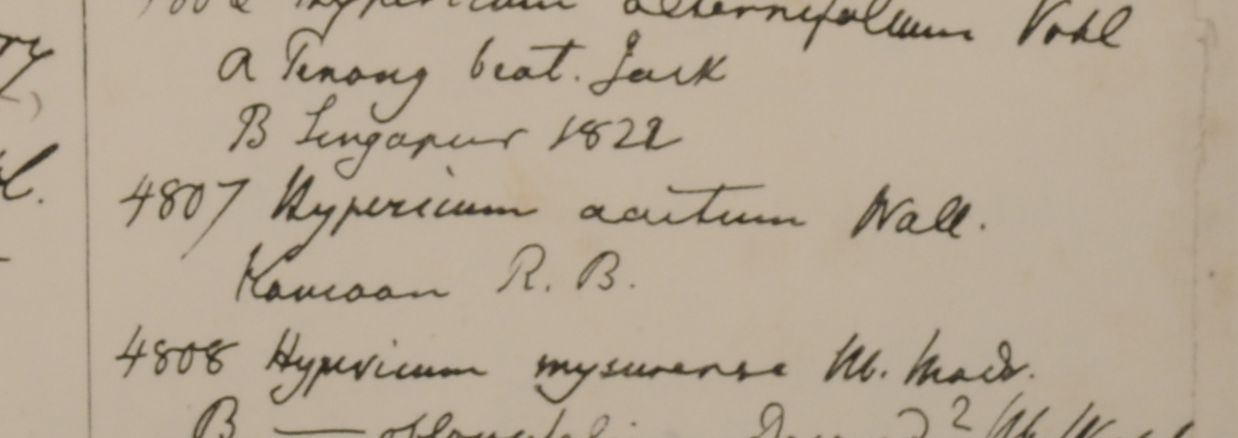 Hypericum alternifolium Vahl
A Penang beat. Jack
B Singapur 1822
4807 Hypericum Wall.
Kamaon R. B.
4808 Hypericum mysurense
B —